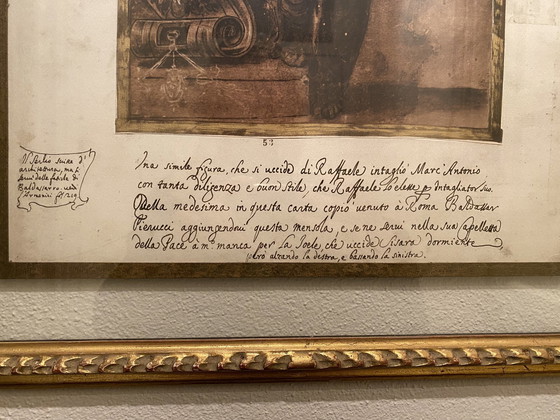 53
Una simile figura, che si uccide di Raffaele intagliò Marc' Antonio
con tanta diligenza e buon stile, che Raffaele l'elesse p Intagliator suo.
Quella medesima in questa carta copiò venuto à Roma Baldasser
Peruzzi aggiungendovi questa mensola, e se ne servì nella sua Capelletta
della Pace à mº manca per la Joele, che uccide Sisara dormiente
però alzando la destra, e bassando la sinistra.
d'
architettura, ma si
servì delle fatiche di
Baldassarro. vedi
Armenini fol. 219